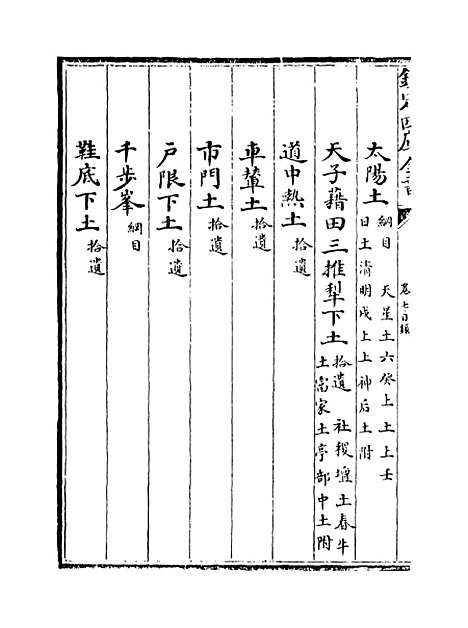 欽定四庫全書
卷七目錄
太陽土 綱目 天星土六癸上土上壬
日土清明戌上上神后土附
天子藉田三推犁下土 拾遺 社稷壇土春牛
土富家土亭部中土附
道中熱土 拾遺
車輦土 拾遺
市門土 拾遺
戸限下土 拾遺
千步峯 綱目
鞋底下土 拾遺